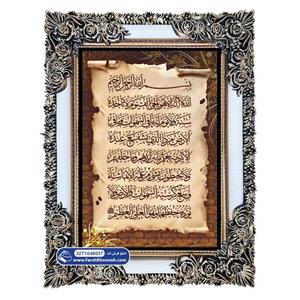 بسم الله الرحمن الرحيم
الله لا اله الا هو الحي القيوم لا تأخذه
سنة ولا نوم له ما في السموات وما في
الارض من ذا الذي يشفع عنده
الا باذنه يعلم ما بين ايديهم وما خلفهم
ولا يحيطون بشيء من علمه الا بما
شاء وسع كرسيه السموات والارض ولا
يؤده حفظهما وهو العلي العظيم
تابلو فرش کد: 32T1046037
www.FarshKhooneh.com